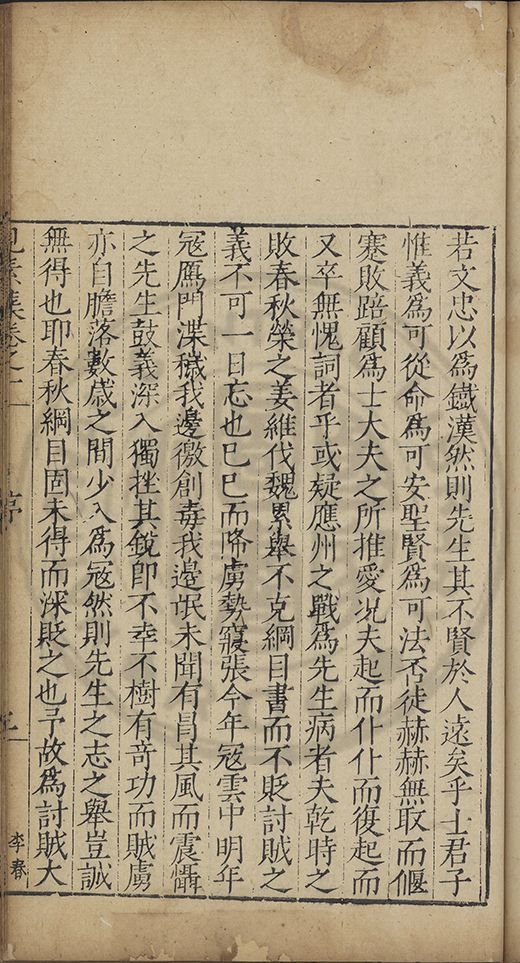 若文忠以爲鐵漢然則先生其不賢於人遠矣乎士君子
惟義爲可從命爲可安聖賢爲可法否徒赫赫無取而偃
蹇敗踣顧爲士大夫之所推愛况夫起而仆仆而復起而
又卒無愧詞者乎或疑應州之戰爲先生病者夫乾時之
敗春秋榮之姜維伐魏累舉不克綱目書而不貶討賊之
義不可一日忘也已巳而降虜勢寖張今年冦雲中明年
冦鴈門渫穢我邊徼創毒我邊氓未聞有冐其風而震懾
之先生鼓義深入獨挫其銳卽不幸不樹有竒功而賊虜
亦自膽落數歲之間少入爲冦然則先生之志之舉豈誠
無得也耶春秋綱目固未得而深貶之也予故爲討賊大
見素集卷之二
序
五
李春